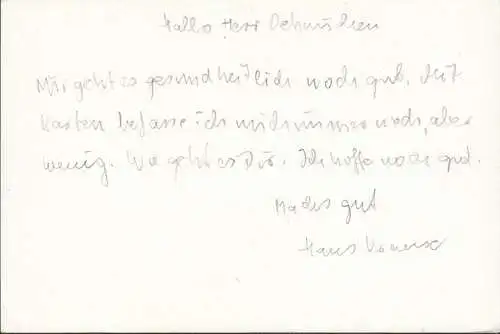 Hallo Herr Oehmichen
Mir geht es gesundheitlich noch gut. Mit
Karten befasse ich mich immer noch, aber
wenig. Wie geht es Dir. Ich hoffe noch gut.
Mach's gut
Hans